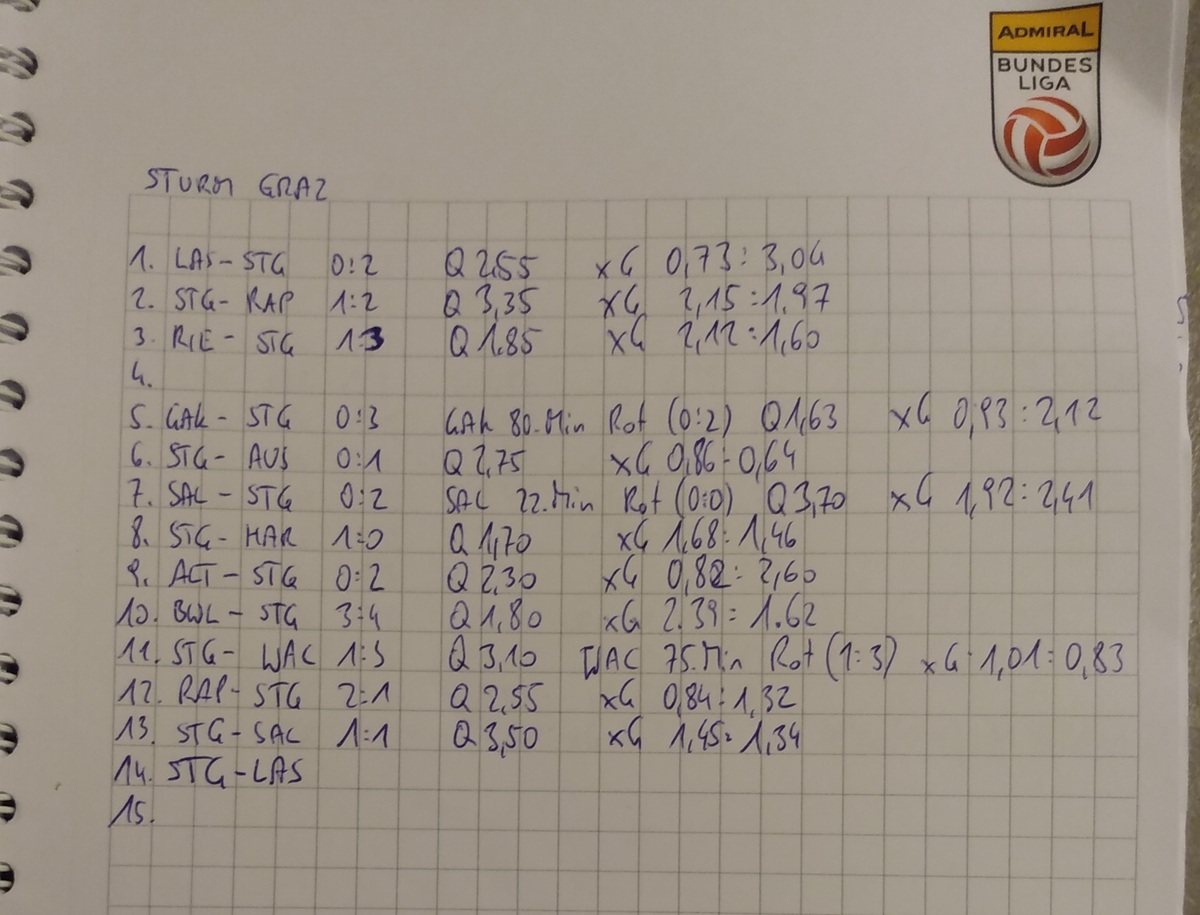 ADMIRAL
BUNDES
LIGA
STURM GRAZ
1. LAS-STG 0:2 Q 2,55 xG 0,73:3,04
2. STG-RAP 1:2 Q 3,35 xG 2,15:1,97
3. RIE-STG 1:3 Q 1,85 xG 2,12:1,60
4.
5. GAK-STG 0:3 GAK 80.Min Rot (0:2) Q 1,63 xG 0,93:2,12
6. STG-AUS 0:1 Q 2,75 xG 0,86:0,64
7. SAL-STG 0:2 SAL 22.Min Rot (0:0) Q 3,70 xG 1,92:2,41
8. STG-HAR 1:0 Q 1,70 xG 1,68:1,46
9. ALT-STG 0:2 Q 2,30 xG 0,82:2,60
10. BWL-STG 3:4 Q 1,80 xG 2.39:1.62
11. STG-WAC 1:3 Q 3,10 WAC 75.Min Rot (1:3) xG:1,01:0,83
12. RAP-STG 2:1 Q 2,55 xG 0,84:1,32
13. STG-SAL 1:1 Q 3,50 xG 1,45:1,34
14. STG-LAS
15.